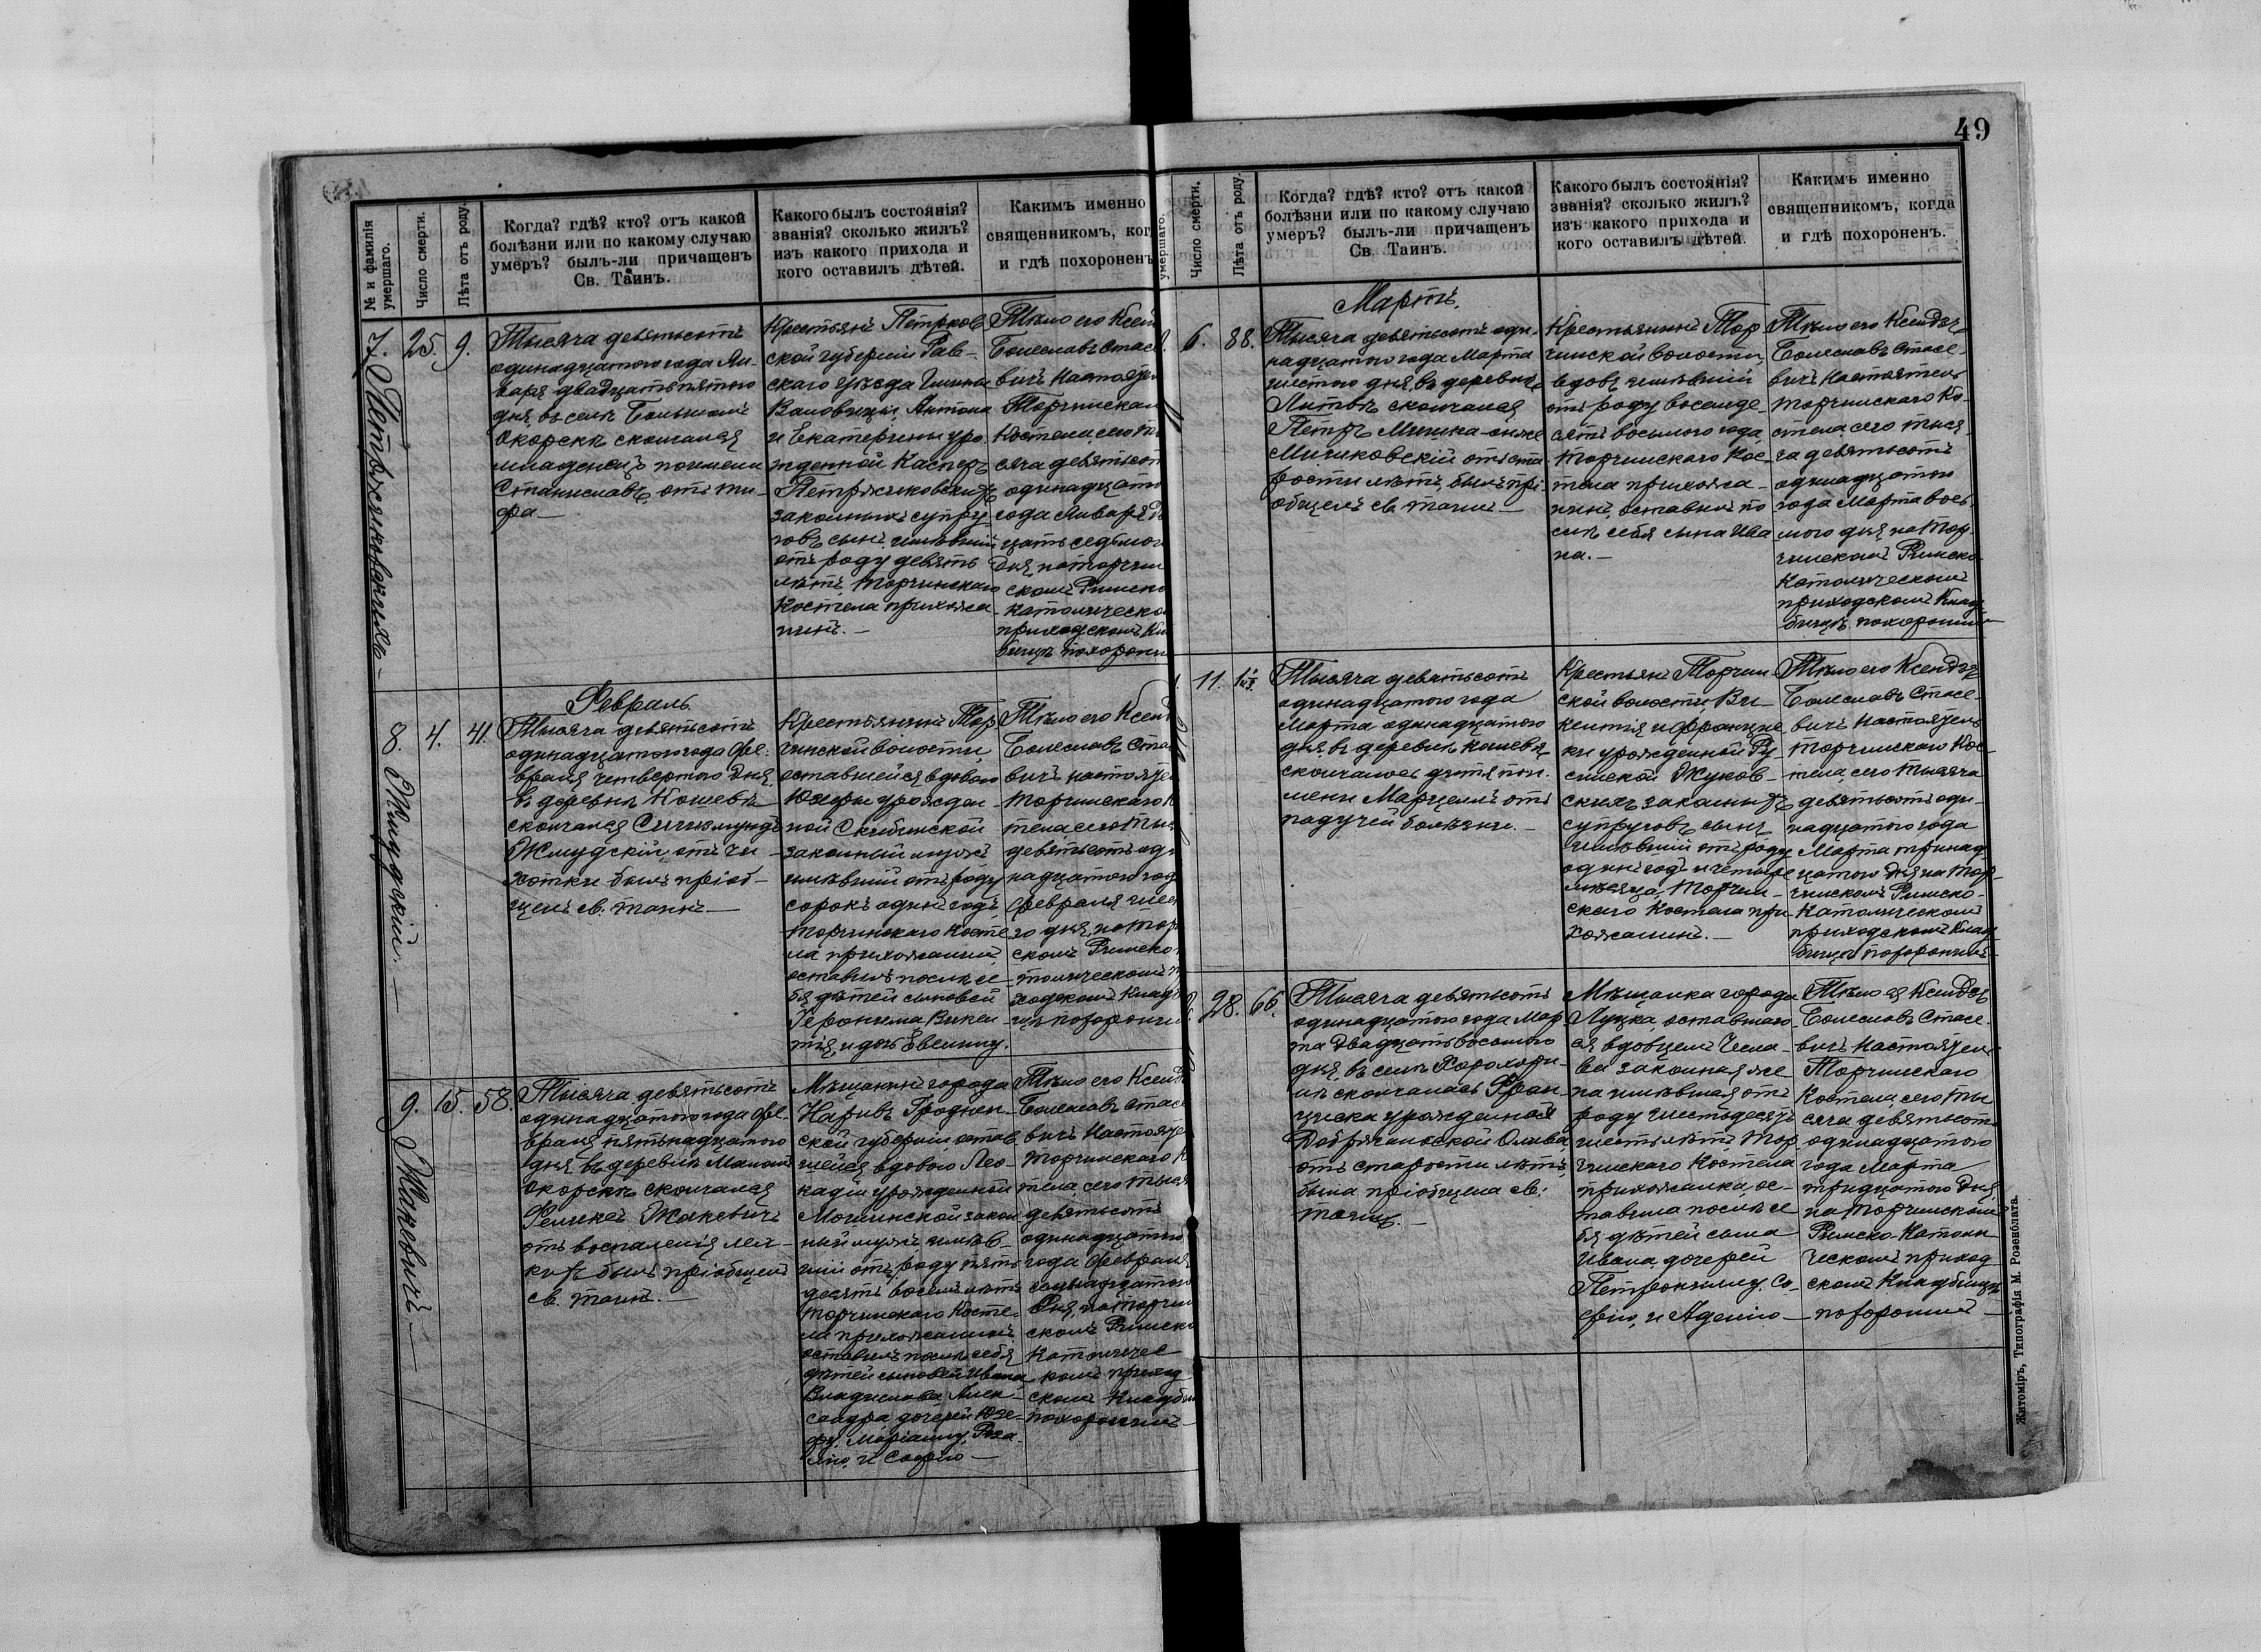 49
№ и фамилія
умершаго.
Число смерти.
Лѣта отъ роду.
Когда? гдѣ? кто? отъ какой
болѣзни или по какому случаю
умеръ? былъ-ли причащенъ
Св. Таинъ.
Какого былъ состоянія?
званія? сколько жилъ?
изъ какого прихода и
кого оставилъ дѣтей.
Какимъ именно
священникомъ, ког
и гдѣ похороненъ
7.
25.
9.
Тысяча девятьсотъ
одинадцатого года Ян-
варя двадцать пятого
дня, въ селѣ Большомъ
Окорскѣ скончался
младенецъ по имени
Станиславъ отъ ти-
фа —
Крестьянъ Петроков
ской губерніи Рав-
скаго уѣзда Гмины
Антона
и Екатерины уро-
жденной Каспер
законныхъ супру-
говъ сынъ, имѣвшій
отъ роду девять
лѣтъ, Торчинскаго
Костела прихожа-
нинъ. —
Тѣло его Ксен
Болеславъ Стасе
вичъ Настояте
Торчинскаго
Костела, сего ты
сяча девятьсот
одинадцатого
года Января дв
цать седьмого
дня на Торчин
скомъ Римско
Католическо
приходскомъ Кл
бищѣ похорони
Февраль.
8. Жмудскій. —
4.
41.
Тысяча девятьсотъ
одинадцатого года Фев-
враля четвертого дня,
въ деревнѣ Кошевѣ
скончался Сигизмундъ
Жмудскій отъ ча-
хотки былъ пріоб-
щенъ св. таинъ —
Крестьянинъ Тор
чинской волости,
оставшейся вдовою
урожден-
ной Скибинской
законный мужъ
имѣвшій отъ роду
сорокъ одинъ годъ
Торчинскаго Косте-
ла прихожанинъ,
оставилъ послѣ се-
бя дѣтей сыновей
Геронима Викен-
тія, и дочь Евелину.
Тѣло его Ксенд
Болеславъ Ста
вичъ настояте
Торчинскаго К
тела сего Тыс
девятьсотъ оди
надцатого год
Февраля шес
го дня, на Торч
скомъ Римско-
толическомъ п
ходскомъ Кладб
щѣ похоронилъ
9. Жакевичъ —
15.
58.
Тысяча девятьсотъ
одинадцатого года Фе-
враля пятьнадцатого
дня, въ деревнѣ Маломъ
Окорскѣ скончался
Феликсъ Жакевичъ
отъ воспаленія лег-
кихъ былъ пріобщенъ
св. таинъ. —
Мѣщанинъ города
Наривъ Гроднен-
ской губерніи, остав
шейся вдовою Лео-
кадіи урожденной
закон
ный мужъ имѣв-
шій отъ роду пять
десятъ восемь лѣтъ
Торчинскаго Косте-
ла прихожанинъ,
оставилъ послѣ себя
дѣтей сыновей Ивана
Владислава, Алек-
сандра дочерей Юзе-
фу, Маріанну, Роза-
лію, и Софію —
Тѣло его Ксенд
Болеславъ Стасе
вичъ Настояте
Торчинскаго К
тела, сего тыся
девятьсотъ
одинадцатого
года Февраля
семьнадцатого
дня, на Торчин
скомъ Римско
Католичес
комъ приход
скомъ Кладби
похоронилъ —
умершаго.
Число смерти.
Лѣта отъ роду.
Когда? гдѣ? кто? отъ какой
болѣзни или по какому случаю
умеръ? былъ-ли причащенъ
Св. Таинъ.
Какого былъ состоянія?
званія? сколько жилъ?
изъ какого прихода и
кого оставилъ дѣтей.
Какимъ именно
священникомъ, когда
и гдѣ похороненъ.
Мартъ.
6.
88.
Тысяча девятьсотъ оди-
надцатого года Марта
шестого дня, въ деревнѣ
Литвѣ скончался
Петръ
отъ ста-
рости лѣтъ, былъ прі-
общенъ св. таинъ —
Крестьянинъ Тор
чинской волости,
вдовъ имѣвшій
отъ роду восемьде-
сятъ восьмого года,
Торчинскаго Кос-
тела прихожа-
нинъ, оставилъ по
слѣ себя сына Ива
на. —
Тѣло его Ксендзъ
Болеславъ Стасе-
вичъ Настоятель
Торчинскаго Ко-
стела, сего тыся-
ча девятьсотъ
одинадцатого
года Марта вось-
мого дня на Тор-
чинскомъ Римско
Католическомъ
приходскомъ Клад-
бищѣ похоронилъ —
11.
Тысяча девятьсотъ
одинадцатого года
Марта одинадцатого
дня, въ деревнѣ Кошевѣ
скончалось дитя по и-
мени Марцелъ отъ
падучей болѣзни. —
Крестьянъ Торчин-
ской волости, Ви-
кентія и Францис-
ки урожденной
Жуков-
скихъ законныхъ
супруговъ сынъ,
имѣвшій отъ роду
одинъ годъ и четыре
мѣсяца, Торчин-
скаго Костела при-
хожанинъ. —
Тѣло его Ксендзъ
Болеславъ Стасе-
вичъ Настоятель
Торчинскаго Кос-
тела, сего Тысяча
девятьсотъ оди-
надцатого года
Марта тринад-
цатого дня на Тор-
чинскомъ Римско-
Католическомъ
приходскомъ Клад-
бищѣ похоронилъ
28.
66.
Тысяча девятьсотъ
одинадцатого года Мар-
та двадцать восьмого
дня, въ селѣ
скончалась Фран-
циска урожденная
отъ старости лѣтъ,
была пріобщена св.
таинъ. —
Мѣщанка города
Луцка оставшаго-
ся вдовцемъ Чесла-
ва законная же-
на имѣвшая отъ
роду шестьдесятъ
шесть лѣтъ Тор-
чинскаго Костела
прихожанка, ос-
тавила послѣ се-
бя дѣтей сына
Ивана, дочерей
Петронелу, Со-
фію, и Аделію —
Тѣло ея Ксендзъ
Болеславъ Стасе-
вичъ Настоятель
Торчинскаго
Костела, сего ты
сяча девятьсотъ
одинадцатого
года Марта
тридцатого дня,
на Торчинскомъ
Римско-Католи-
ческомъ приход
скомъ Кладбищѣ
похоронилъ —
Житоміръ, Типографія М. Розенблата.